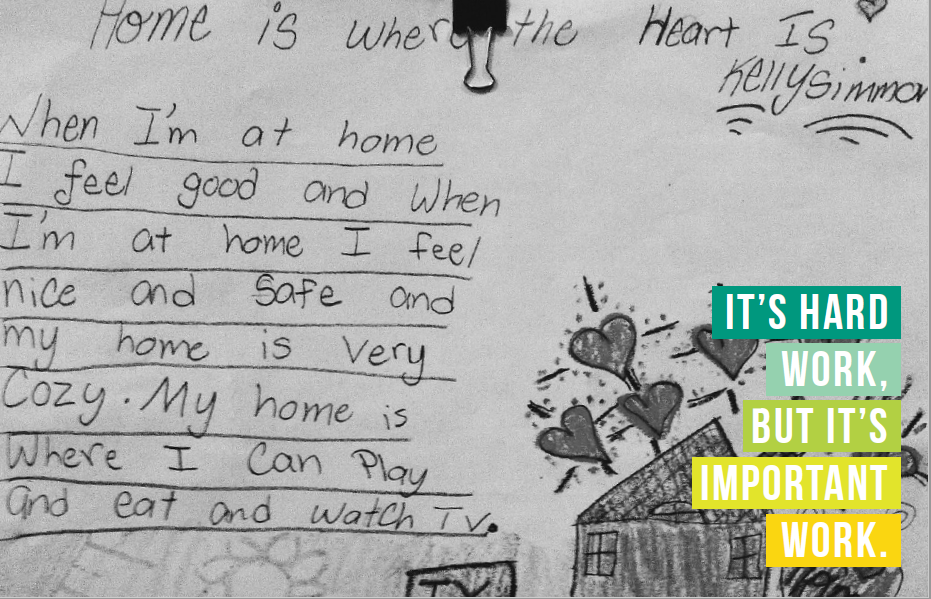 Home is where the Heart IS
Kelly Simmon
When I'm at home
I feel good and when
I'm at home I feel
nice and safe and
my home is very
Cozy. My home is
Where I Can Play
and eat and watch Tv.
TV
IT'S HARD
WORK,
BUT IT'S
IMPORTANT
WORK.